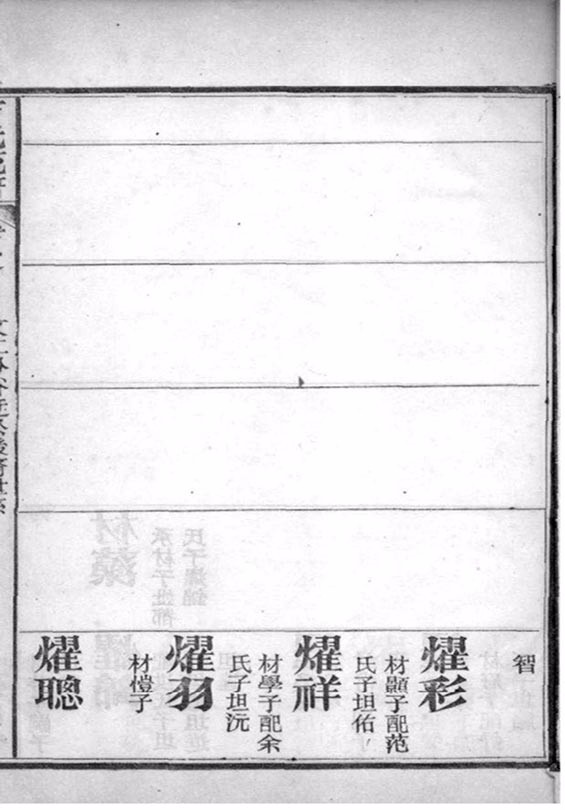 智
燿彩
材顯子配范
氏子坦佑
燿祥
材學子配余
氏子坦沅
燿羽
材愷子
燿聰